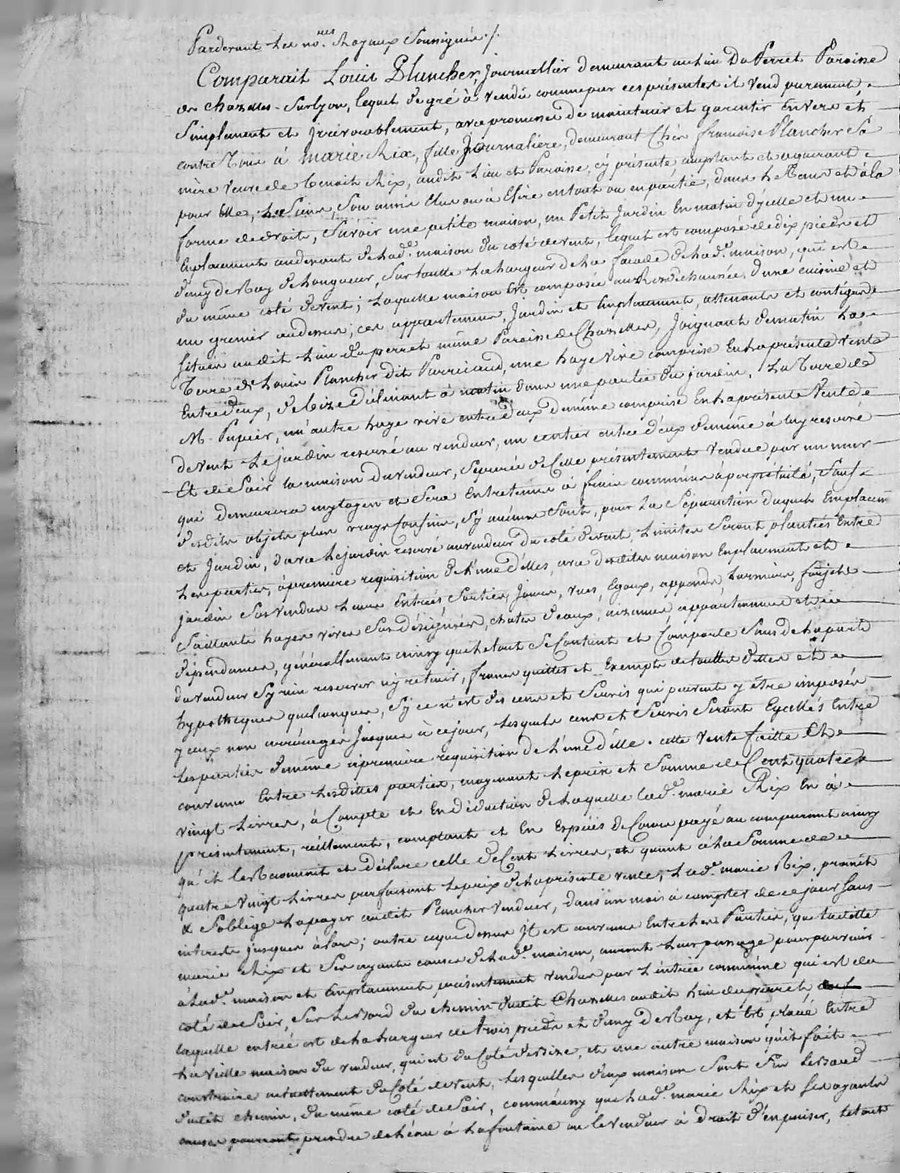 Pardevant Les no.res Royaux Soussignés /.
Comparait Louis Plancher Journallier demeurant au lieu Du Perret Paroisse
de Chazelles Surlyon, lequel de gré à vendû comme par ces présentes il vend purement,
Simplement et Irrévocablement, avec promesse de maintenir et garentir Envers et
contre Tous à marie Rix, fille Journalière, demeurant Chés francoise Plancher Sa
mère veuve de benoit Rix, audit Lieu et Paroisse, cy présente acceptante et aquerant
pour Elle, Les Siens, Son amis Elus ou à Elire en tout ou en partie, dans Le Tems et à la
forme de droit, Savoir une petite maison, un Petit Jardin En matin d'yelle et un
Emplacement audevant de lad.e maison du coté de vent, lequel est composé de dix pieds et
demy de Roy de longueur, Sur toutte La largeur de la façade de lad.e maison, qui est
du même coté de vent; Laquelle maison Est composée au Rez de chaussée, d'une cuisine et
un grenier audessus; ces appartements, Jardin et Emplacement, attenants et contigus
Situés audit Lieu du perret même Paroisse de Chazelles, Joignant de matin La
Terre de Louis Plancher dit Parricaud, une haye vive comprise En la présente vente
Entredeux, de bize declinant à matin dans une partie du jardin, La Terre de
M. Pupier, un'autre haye vive entredeux de même comprise En la présente Vente
de vent Le jardin reservé au vendeur, un sentier entre deux de même à luy reservé
Et de Soir la maison du vendeur, Séparée de Celle présentement vendue par un mur
qui demeurera mytoyen et Sera Entretenu à frais communs à perpétuité, Sauf
desdits objets plus vrays Confins, Sy aucuns Sont, pour La Séparation duquel Emplacem.t
et Jardin, d'avec le jardin reservé au vendeur du coté de vent, Limites Seront plantées Entre
Les parties, à première requisition de l'une d'elles avec desdites maison Emplacement et
jardin Sus vendus Leurs Entrées, Sorties, Jours, vues, Egoux, appends, Larmiers, forjets
Saillants hayes vives Sus désignées, chutes d'eaux, aizances appartenances et
dépendances, générallement ainsy que le tout Se Contient et Comporte Sans de la part
du vendeur S'y rien reserver n'y retenir, francs quittes et Exempts de touttes dettes et
hypotheques quelconques, Sy ce n'est des cens et Servis qui peuvent y être imposés
yceux non arréragés Jusques à ce jour, Lesquels cens et Servis Seront Egallés Entre
Les parties de même à première requisition de l'une d'elle. cette Vente faitte Et
convenue Entre Lesdittes parties, moyenant Le prix et Somme de Cent quatre
vingt Livres, à Compte et En déduction de Laquelle Lad.e marie Rix En a
présentement, réellement, comptant et En Espèces de Cours payé au comparant ainsy
qu'il Le reconnoit et déclare celle de Cent Livres, et quant à la Somme de
quatre vingt Livres parfaisant Le prix de la présente vente, Lad.e marie Rix, promêt
& S'oblige La payer audit Plancher vendeur, dans un mois à compter de ce jour Sans
interets jusques à lors; outre ce que dessus Il est convenu Entre Les Parties, que laditte
marie Rix et Ses ayants causes de lad.e maison, auront Leur passage pour parvenir
à Lad.e maison et Emplacement présentement vendus par L'entrée commune qui est du
coté de Soir, Sur Le bord du chemin dudit Chazelles audit Lieu du perret
laquelle entrée est de la largeur de trois pieds et demy de Roy, et Est placée Entre
La vieille maison du vendeur, qui est du Coté de bize, et une autre maison qu'il fait
construire actuellement du Coté de vent, Lesquelles deux maison Sont Sur Le bord
dudit chemin, du même coté de Soir, comme aussy que Lad.e marie Rix et Ses ayants
causes pourront prendre de l'eau à La fontaine ou le vendeur à droit d'en puiser, Le tout